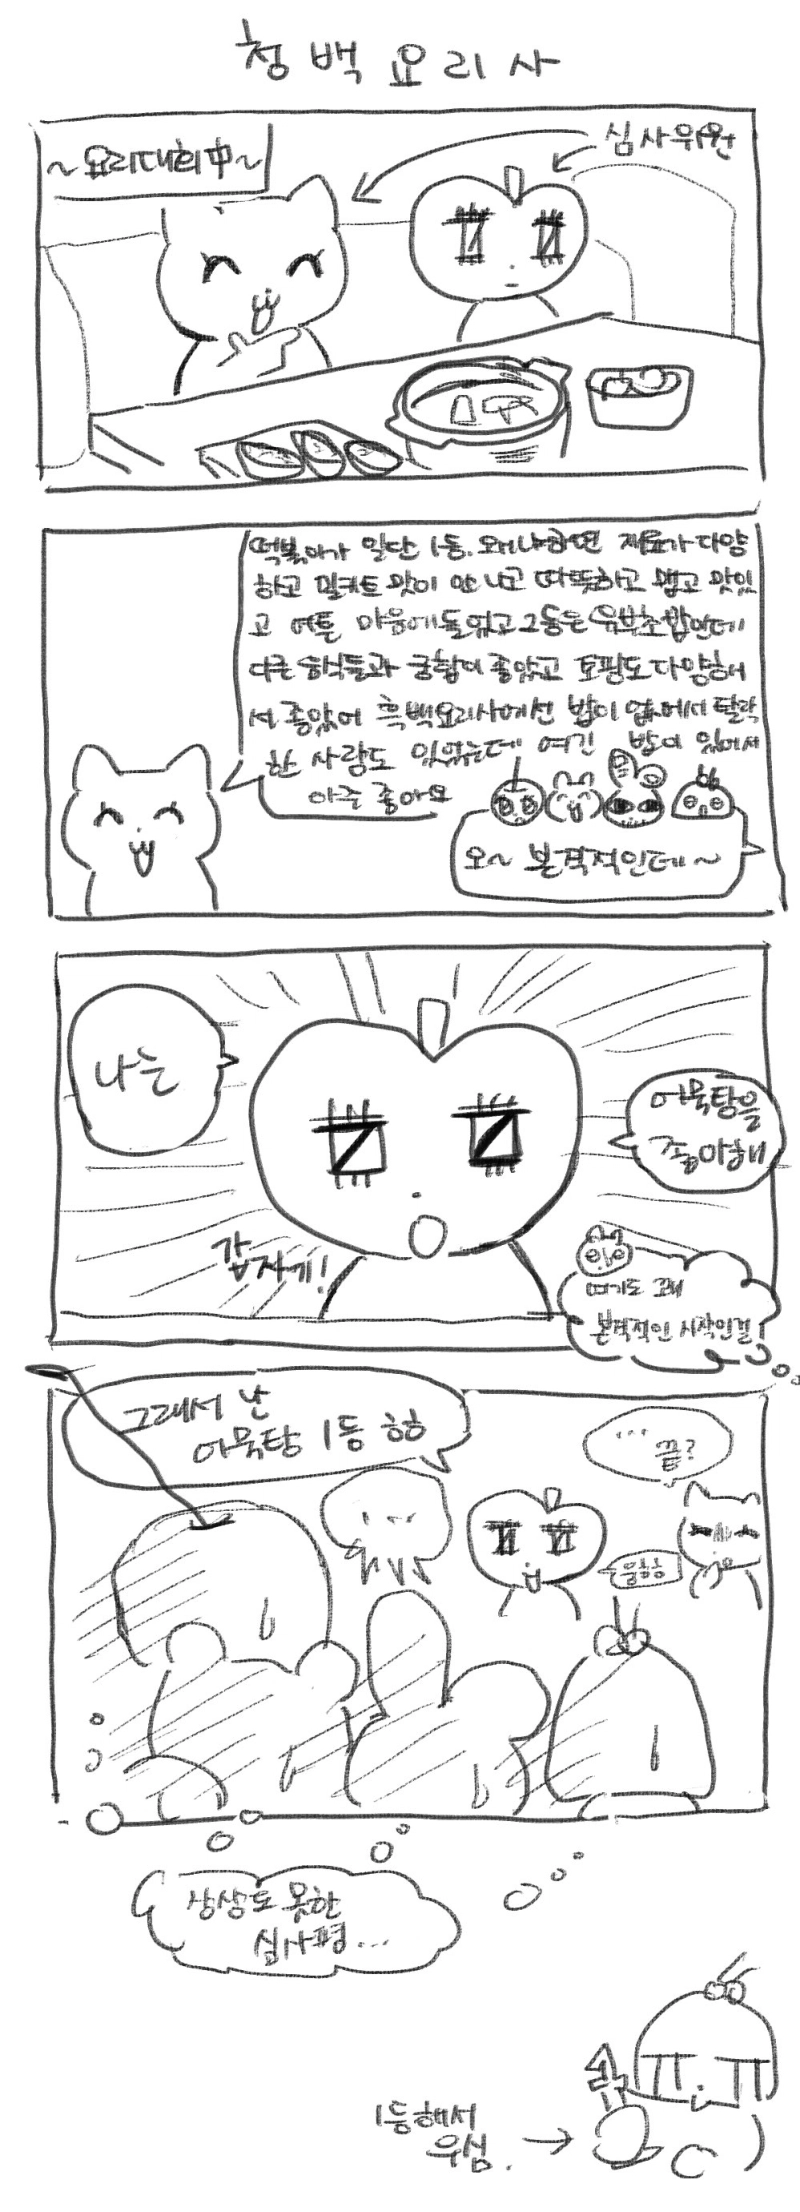 청백요리사
~요리대회中~
심사위원
떡볶이가 일단 1등. 왜냐하면 재료가 다양
하고 밀키트 맛이 안 나고 따뜻하고 맵고 맛있
고 여튼 마음에 들었고 2등은 유부초밥인데
다른 음식들과 궁합이 좋았고 토핑도 다양해
서 좋았어 흑백요리사에선 밥이 없어서 탈락
한 사람도 있었는데 여긴 밥이 있어서
아주 좋아요
오~ 본격적인데~
나는
어묵탕을
좋아해
갑자기!
여기도 꽤
본격적인 시작인걸!
그래서 난
어묵탕 1등 핫
... 끝?
웅ㅎㅎ
상상도 못한
심사평...
1등해서
우심.